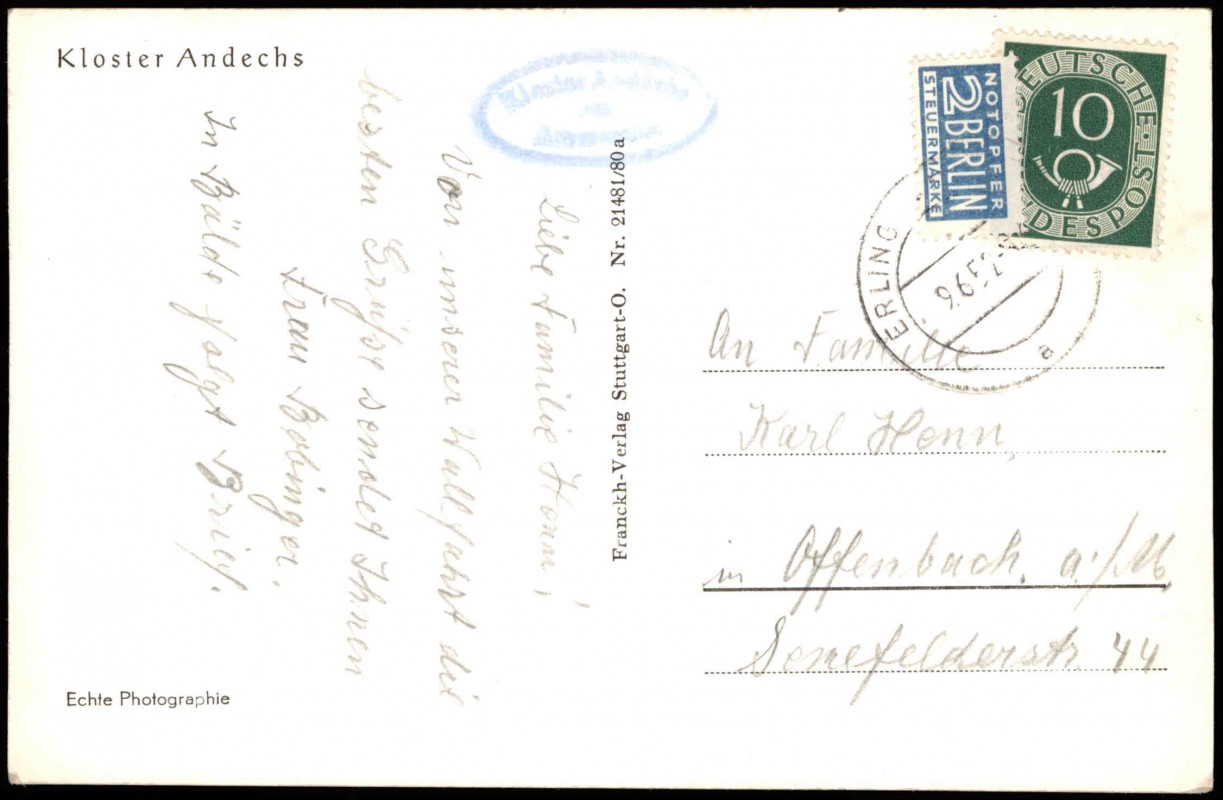 Kloster Andechs
Liebe Familie Henn!
Von unserer Wallfahrt die
besten Grüße sendet Ihnen
Frau Bobinger.
In Bälde folgt Brief.
Echte Photographie
Franckh-Verlag Stuttgart-O. Nr. 21481/80a
NOTOPFER
2 BERLIN
STEUERMARKE
DEUTSCHE
10
BUNDESPOST
ERLING
9.6.52
a
An Familie
Karl Henn
in Offenbach. a./M.
Senefelderstr. 44